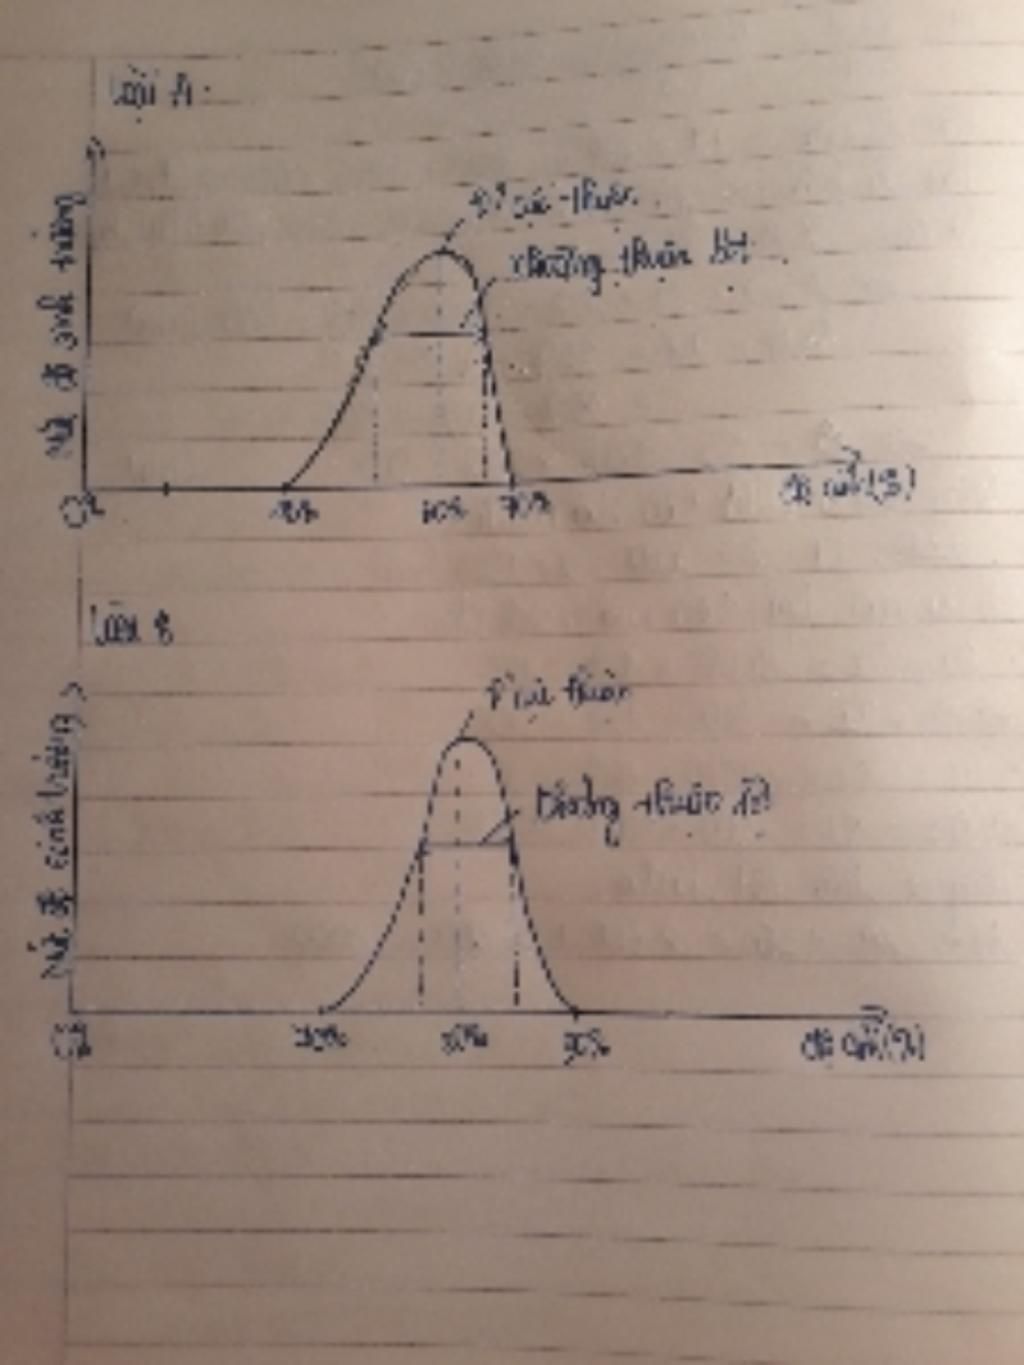 Loài A:
Mức độ sinh trưởng
Đ² cực thuận
khoảng thuận lợi
0%
40%
60%
70%
độ ẩm (%)
Loài B
Mức độ sinh trưởng
cực thuận
khoảng thuận lợi
90%
độ ẩm (%)